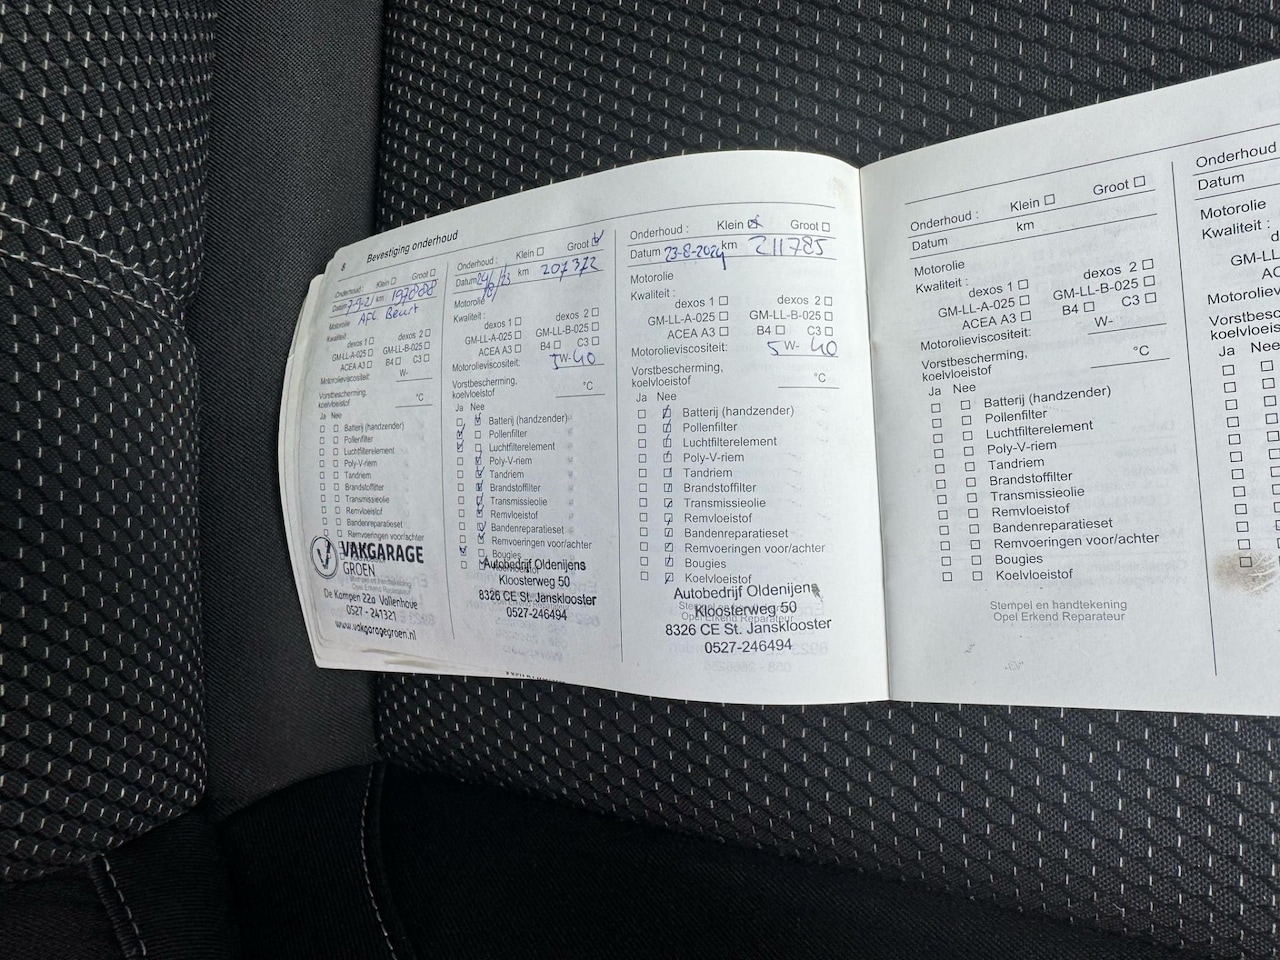 8 Bevestiging onderhoud
Onderhoud : Klein Groot
Datum 7-9-21 km
Motorolie AFL Beurt
Kwaliteit:
dexos 1 dexos 2
GM-LL-A-025 GM-LL-B-025
ACEA A3 B4 C3
Motorolieviscositeit: W-
Vorstbescherming,
koelvloeistof °C
Ja Nee
Batterij (handzender)
Pollenfilter
Luchtfilterelement
Poly-V-riem
Tandriem
Brandstoffilter
Transmissieolie
Remvloeistof
Bandenreparatieset
Remvoeringen voor/achter
VAKGARAGE
GROEN
De Kampen 22a Vollenhove
0527 - 241321
www.vakgaragegroen.nl
Onderhoud : Klein Groot
Datum km 207372
Motorolie
Kwaliteit :
dexos 1 dexos 2
GM-LL-A-025 GM-LL-B-025
ACEA A3 B4 C3
Motorolieviscositeit: 5W-40
Vorstbescherming,
koelvloeistof °C
Ja Nee
Batterij (handzender)
Pollenfilter
Luchtfilterelement
Poly-V-riem
Tandriem
Brandstoffilter
Transmissieolie
Remvloeistof
Bandenreparatieset
Remvoeringen voor/achter
Bougies
Autobedrijf Oldenijens
Kloosterweg 50
8326 CE St. Jansklooster
0527-246494
Onderhoud : Klein Groot
Datum 23-8-2024 km 211785
Motorolie
Kwaliteit :
dexos 1 dexos 2
GM-LL-A-025 GM-LL-B-025
ACEA A3 B4 C3
Motorolieviscositeit: 5W-40
Vorstbescherming,
koelvloeistof °C
Ja Nee
Batterij (handzender)
Pollenfilter
Luchtfilterelement
Poly-V-riem
Tandriem
Brandstoffilter
Transmissieolie
Remvloeistof
Bandenreparatieset
Remvoeringen voor/achter
Bougies
Koelvloeistof
Autobedrijf Oldenijens
Stempel en handtekening
Kloosterweg 50
Opel Erkend Reparateur
8326 CE St. Jansklooster
0527-246494
Onderhoud : Klein Groot
Datum km
Motorolie
Kwaliteit :
dexos 1 dexos 2
GM-LL-A-025 GM-LL-B-025
ACEA A3 B4 C3
Motorolieviscositeit: W-
Vorstbescherming,
koelvloeistof °C
Ja Nee
Batterij (handzender)
Pollenfilter
Luchtfilterelement
Poly-V-riem
Tandriem
Brandstoffilter
Transmissieolie
Remvloeistof
Bandenreparatieset
Remvoeringen voor/achter
Bougies
Koelvloeistof
Stempel en handtekening
Opel Erkend Reparateur
Onderhoud
Datum
Motorolie
Kwaliteit :
GM-LL-
Motoroliev
Vorstbesc
koelvloeis
Ja Nee